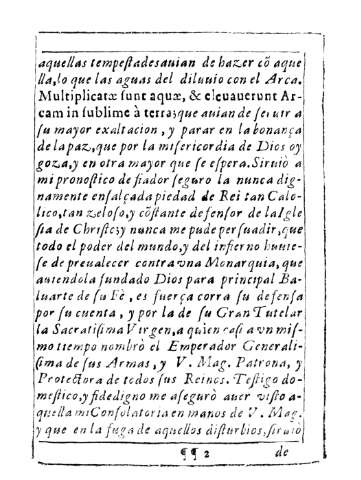 aquellas tempestades auian de hazer cõ aque
lla, lo que las aguas del diluuio con el Arca.
Multiplicatæ sunt aquæ, & eleuauerunt Ar-
cam in sublime à terra; que auian de seruir a
su mayor exaltacion, y parar en la bonança
de la paz, que por la misericordia de Dios oy
goza, y en otra mayor que se espera. Siruiò a
mi pronostico de fiador seguro la nunca dig-
namente ensalçada piedad de Rei tan Cato-
lico, tan zeloso, y cõstante defensor de la Igle
sia de Christo; y nunca me pude persuadir, que
todo el poder del mundo, y del infierno huuie-
se de preualecer contra vna Monarquia, que
auiendola fundado Dios para principal Ba-
luarte de su Fè, es fuerça corra su defensa
por su cuenta, y por la de su Gran Tutelar
la Sacratissima Virgen, a quien casi a vn mis-
mo tiempo nombrò el Emperador Generali-
sima de sus Armas, y V. Mag. Patrona, y
Protectora de todos sus Reinos. Testigo do-
mestico, y fidedigno me asegurò auer visto a-
quella mi Consolatoria en manos de V. Mag.
y que en la fuga de aquellos disturbios, siruiò
¶¶ 2 de